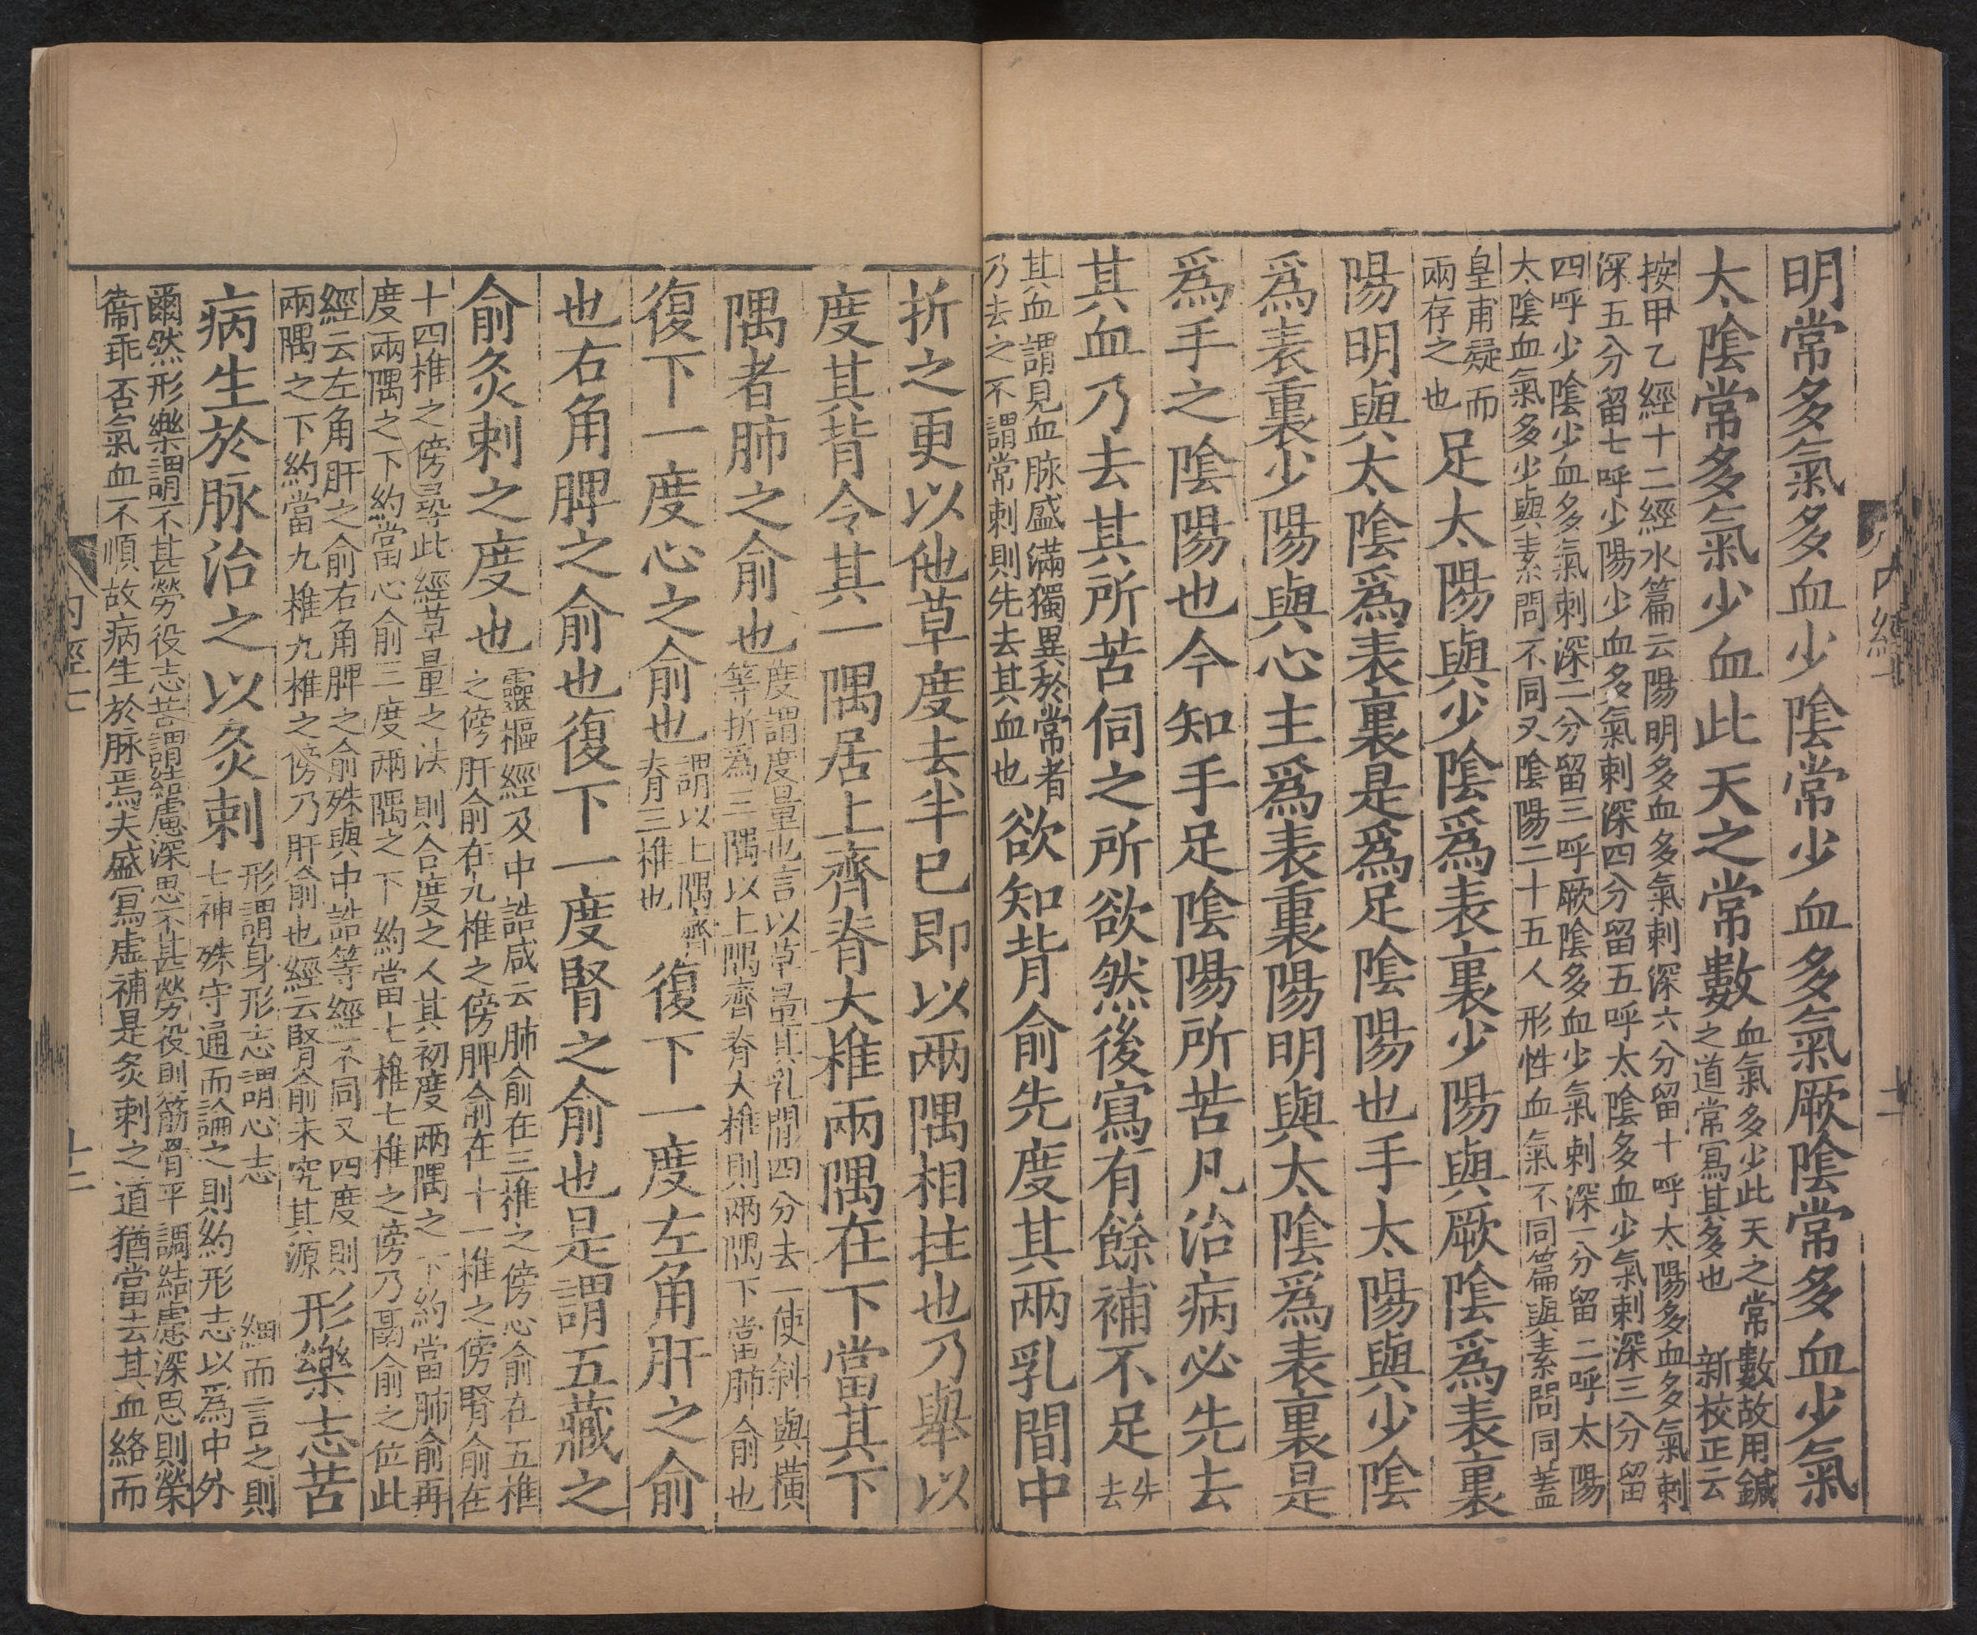 明常多氣多血少陰常少血多氣厥陰常多血少氣
太陰常多氣少血此天之常數
血氣多少此天之常數故用鍼
之道常寫其多也　新校正云
按甲乙經十二經水篇云陽明多血多氣刺深六分留十呼太陽多血多氣刺
深五分留七呼少陽少血多氣刺深四分留五呼太陰多血少氣刺深三分留
四呼少陰少血多氣刺深二分留三呼厥陰多血少氣刺深一分留二呼太陽
太陰血氣多少與素問不同又陰陽二十五人形性血氣不同篇與素問同蓋
皇甫疑而
兩存之也
足太陽與少陰爲表裏少陽與厥陰爲表裏
陽明與太陰爲表裏是爲足陰陽也手太陽與少陰
爲表裏少陽與心主爲表裏陽明與太陰爲表裏是
爲手之陰陽也今知手足陰陽所苦凡治病必先去
其血乃去其所苦伺之所欲然後寫有餘補不足
先
去
其血謂見血脉盛滿獨異於常者
乃去之不謂常刺則先去其血也
欲知背俞先度其两乳間中
折之更以他草度去半已即以两隅相拄也乃舉以
度其背令其一隅居上齊脊大椎兩隅在下當其下
隅者肺之俞也
度謂度量也言以草量其乳間四分去一使斜與横
等折爲三隅以上隅齊脊大椎則兩隅下當肺俞也
復下一度心之俞也
謂以上隅齊
脊三椎也
復下一度左角肝之俞
也右角脾之俞也復下一度腎之俞也是謂五藏之
俞灸刺之度也
靈樞經及中誥咸云肺俞在三椎之傍心俞在五椎
之傍肝俞在九椎之傍脾俞在十一椎之傍腎俞在
十四椎之傍尋此經草量之法則合度之人其初度兩隅之下約當肺俞再
度兩隅之下約當心俞三度兩隅之下約當七椎七椎之傍乃鬲俞之位此
經云左角肝之俞右角脾之俞殊與中誥等經不同又四度則
兩隅之下約當九椎九椎之傍乃肝俞也經云腎俞未究其源
形樂志苦
病生於脉治之以灸刺
形謂身形志謂心志　細而言之則
七神殊守通而論之則約形志以爲中外
爾然形樂謂不甚勞役志苦謂結慮深思不甚勞役則筋骨平調結慮深思則榮
衞乖否氣血不順故病生於脉焉夫盛寫虛補是灸刺之道猶當去其血絡而
内經七
十二